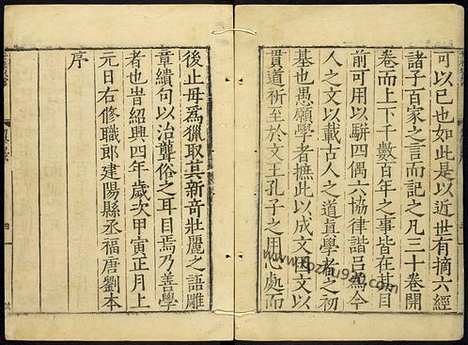 可以已也如此是以近世有摘六經
諸子百家之言而記之凡三十卷開
卷而上下千數百年之事皆在其目
前可用以駢四偶六協律諧呂為今
人之文以載古人之道真學者之初
基也愚願學者摭此以成文因文以
貫道祈至於文王孔子之用心處而
後止毋為獵取其新奇壯麗之語雕
章繢句以治聾俗之耳目焉乃善學
者也旹紹興四年歲次甲寅正月上
元日右修職郎建陽縣丞福唐劉本
序